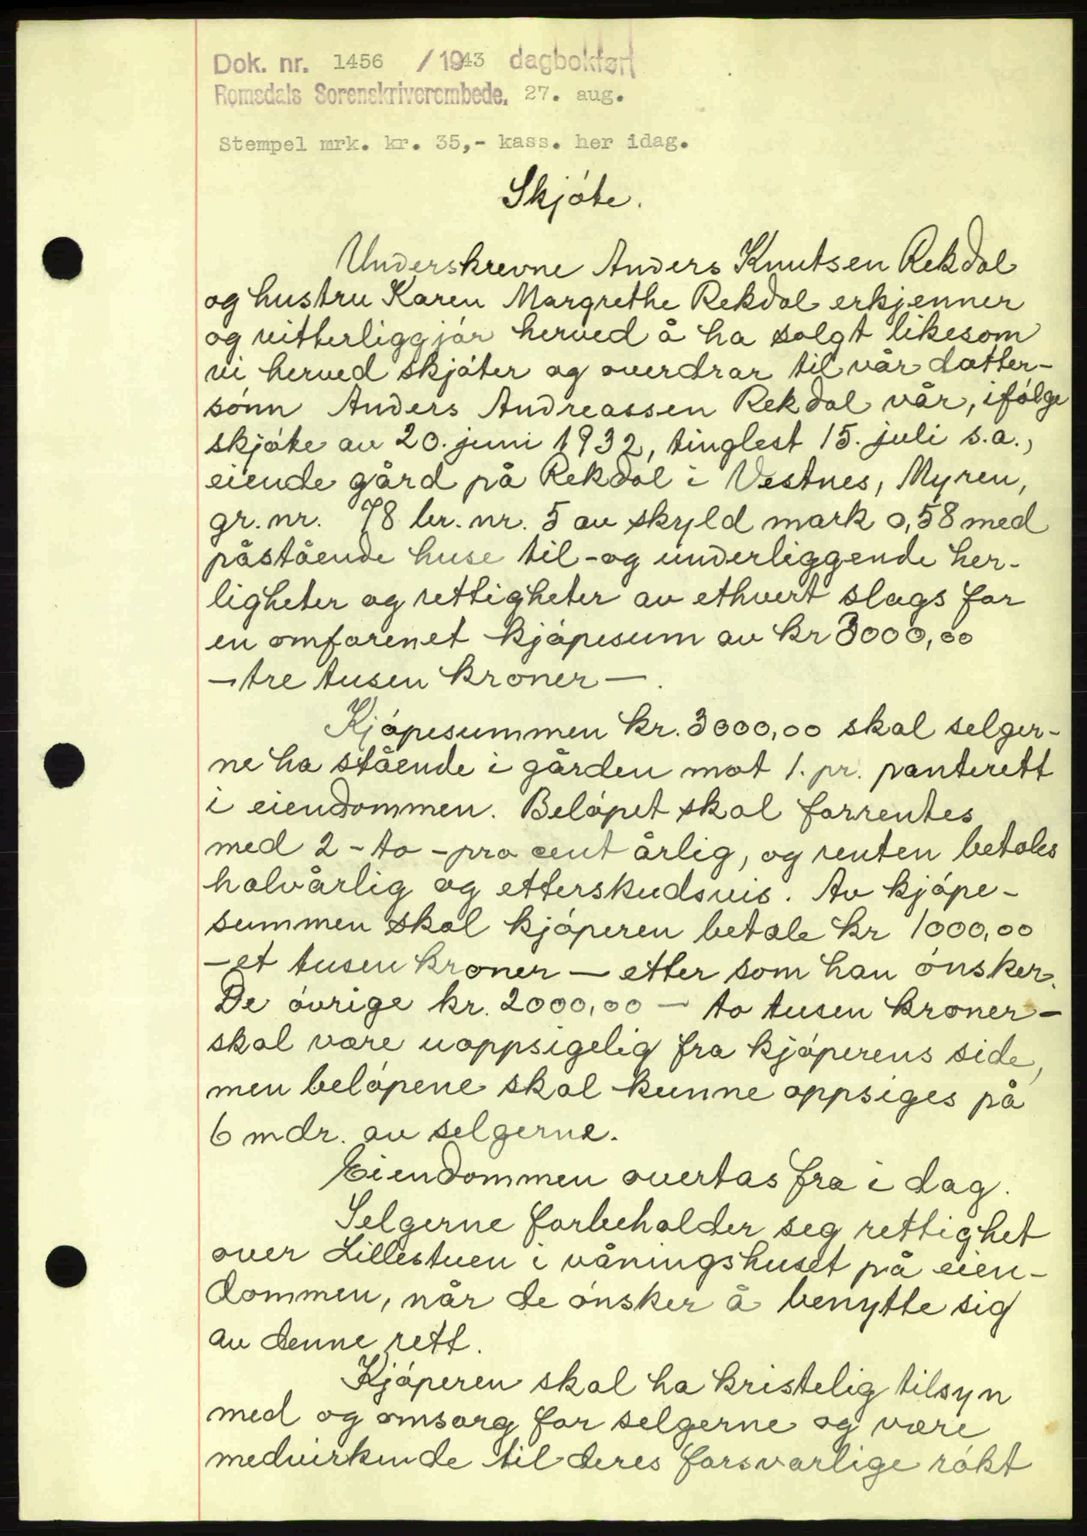 Dok. nr. 1456 / 1943 dagbokført
Romsdals Sorenskriverembede. 27. aug.
Stempel mrk. kr. 35,- kass. her idag.
Skjóte.
Underskrevne Anders Knutsen Rekdal
og hustru Karen Margrethe Rekdal erkjenner
og vitterliggjór herved å ha solgt likesom
vi herved skjóter og overdrar til vår datter-
sónn Anders Andreassen Rekdal vår, ifólge
skjóte av 20. juni 1932, tinglest 15. juli s.a.,
eiende gård på Rekdal i Vestnes, Myren,
gr. nr. 78 br. nr. 5 av skyld mark 0,58 med
påstående huse til- og underliggende her-
ligheter og rettigheter av ethvert slags for
en omforenet kjópesum av kr 3000,00
— tre tusen kroner —.
Kjópesummen kr. 3000,00 skal selger-
ne ha stående i gården mot 1. pr. panterett
i eiendommen. Belópet skal forrentes
med 2 - to - pro cent årlig, og renten betales
halvårlig og etterskudsvis. Av kjópe-
summen skal kjóperen betale kr 1000,00
— et tusen kroner — etter som han ónsker.
De óvrige kr. 2000,00 — to tusen kroner —
skal være uoppsigelig fra kjóperens side,
men belópene skal kunne oppsiges på
6 mdr. av selgerne.
Eiendommen overtas fra i dag.
Selgerne forbeholder seg rettighet
over Lillestuen i våningshuset på eien-
dommen, når de ónsker å benytte sig
av denne rett.
Kjóperen skal ha kristelig tilsyn
med og omsorg for selgerne og være
medvirkende til deres forsvarlige rókt